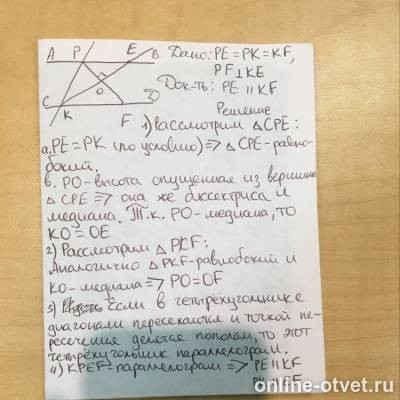 A P E B Дано: PE = PK = KF,
PF ⊥ KE
O Док-ть: PE || KF
C K F D
Решение
1) Рассмотрим △ CPE:
a. PE = PK (по условию) => △ CPE - равно-
бокий.
в. PO - высота опущенная из вершины
△ CPE => она же биссектриса и
медиана. Т.к. PO - медиана, то
KO = OE
2) Рассмотрим △ PKF:
Аналогично △ PKF - равнобокий и
KO - медиана => PO = OF
3) Если в четырёхугольнике
диагонали пересекаются и точкой пе-
ресечения делятся пополам, то этот
четырёхугольник параллелограм.
4) KPEF - параллелограм => PE || KF
online-otvet.ru